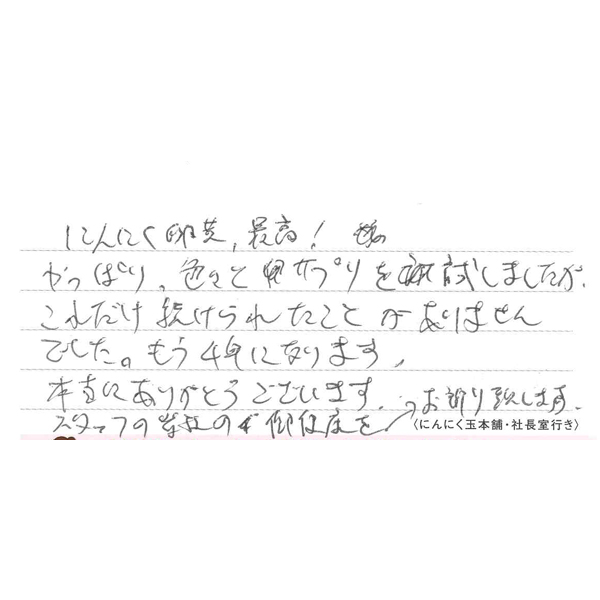 にんにく卵黄、最高!
やっぱり、色々とサプリを試しましたが、
これだけ続けられたことがありません
でした。もう4年になります、
本当にありがとうございます。
スタッフの皆様の御健康を→お祈り致します。
〈にんにく玉本舗・社長室行き〉